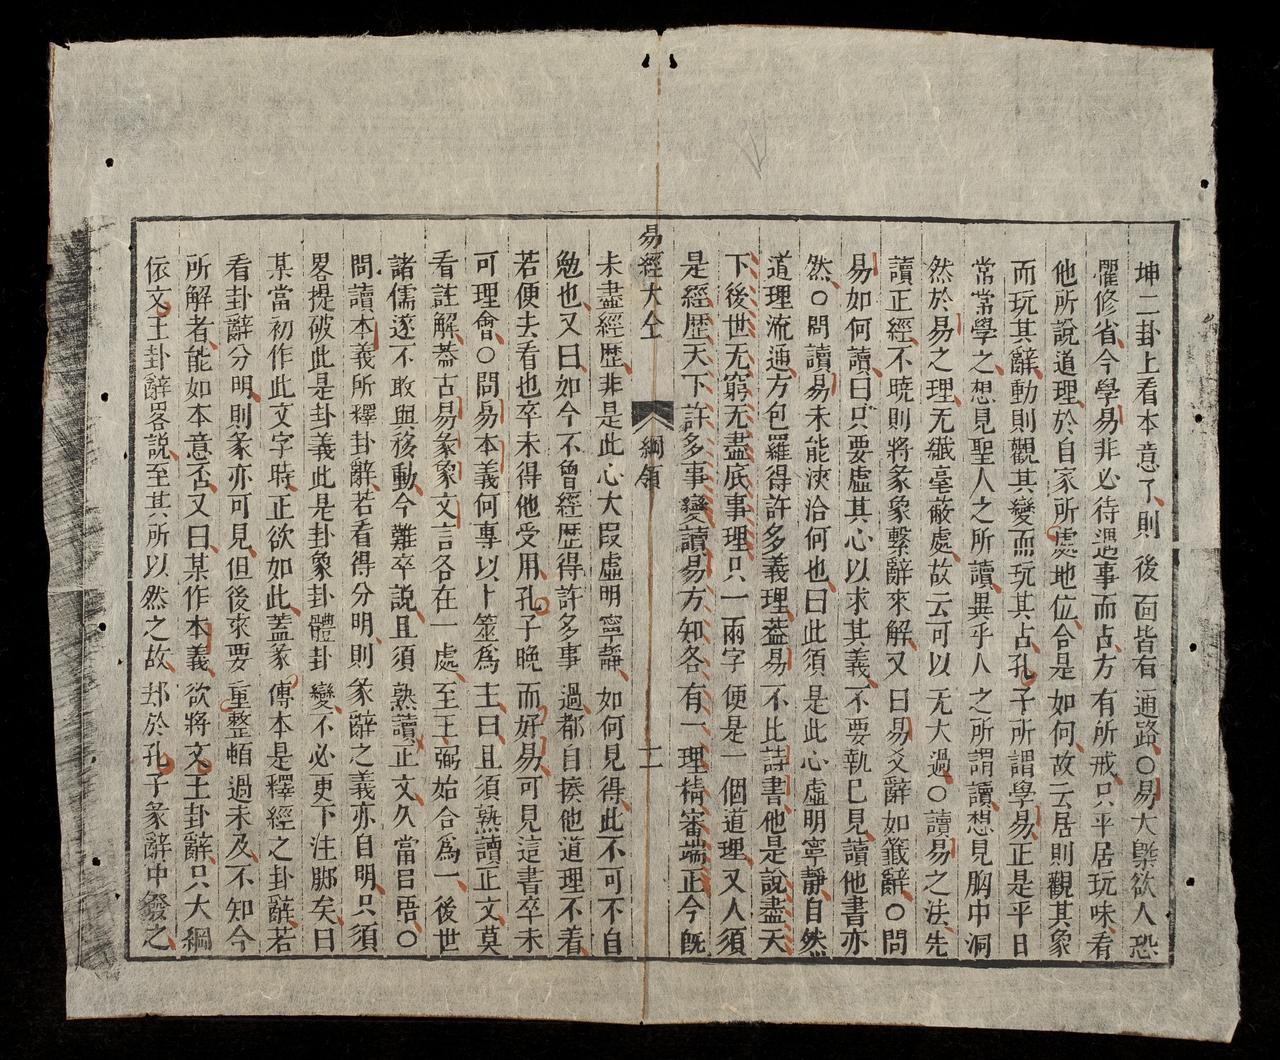 坤二卦上看本意了則後面皆有通路○易大槩欲人恐
懼修省今學易非必待遇事而占方有所戒只平居玩味看
他所說道理於自家所處地位合是如何故云居則觀其象
而玩其辭動則觀其變而玩其占孔子所謂學易正是平日
常常學之想見聖人之所讀異乎人之所謂讀想見胸中洞
然於易之理无纎毫蔽處故云可以无大過○讀易之法先
讀正經不曉則將彖象繫辭來解又曰易爻辭如籤辭○問
易如何讀曰只要虛其心以求其義不要執巳見讀他書亦
然○問讀易未能浹洽何也曰此須是此心虛明寧靜自然
道理流通方包羅得許多義理葢易不比詩書他是說盡天
下後世无窮无盡底事理只一兩字便是一個道理又人須
是經歷天下許多事變讀易方知各有一理精審端正今旣
易經大全 綱領 二
未盡經歷非是此心大叚虛明寧靜如何見得此不可不自
勉也又曰如今不曾經歷得許多事過都自揍他道理不着
若便去看也卒未得他受用孔子晚而好易可見這書卒未
可理會○問易本義何專以卜筮爲主曰且須熟讀正文莫
看註解葢古易彖象文言各在一處至王弼始合爲一後世
諸儒遂不敢與移動今難卒說且須熟讀正文久當自悟○
問讀本義所釋卦辭若看得分明則彖辭之義亦自明只須
畧提破此是卦義此是卦象卦體卦變不必更下注脚矣曰
某當初作此文字時正欲如此蓋彖傳本是釋經之卦辭若
看卦辭分明則彖亦可見但後來要重整頓過未及不知今
所解者能如本意否又曰某作本義欲將文王卦辭只大綱
依文王卦辭畧説至其所以然之故却於孔子彖辭中發之